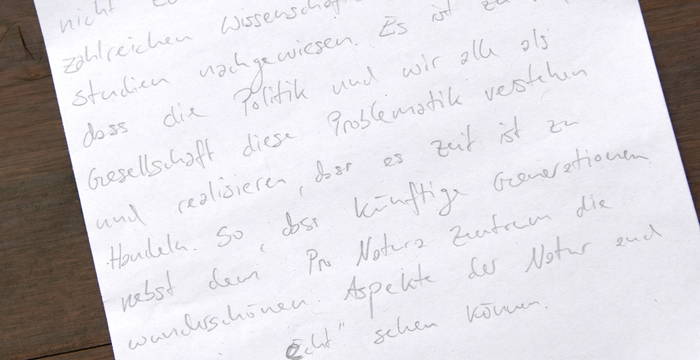 nicht
zahlreichen Wissenschaft
studien nachgewiesen. Es ist zu
dass die Politik und wir alle als
Gesellschaft diese Problematik verstehen
und realisieren, dass es Zeit ist zu
Handeln. So, dass künftige Generationen
nebst dem Pro Natura Zentrum die
wunderschönen Aspekte der Natur auch
"echt" sehen können.